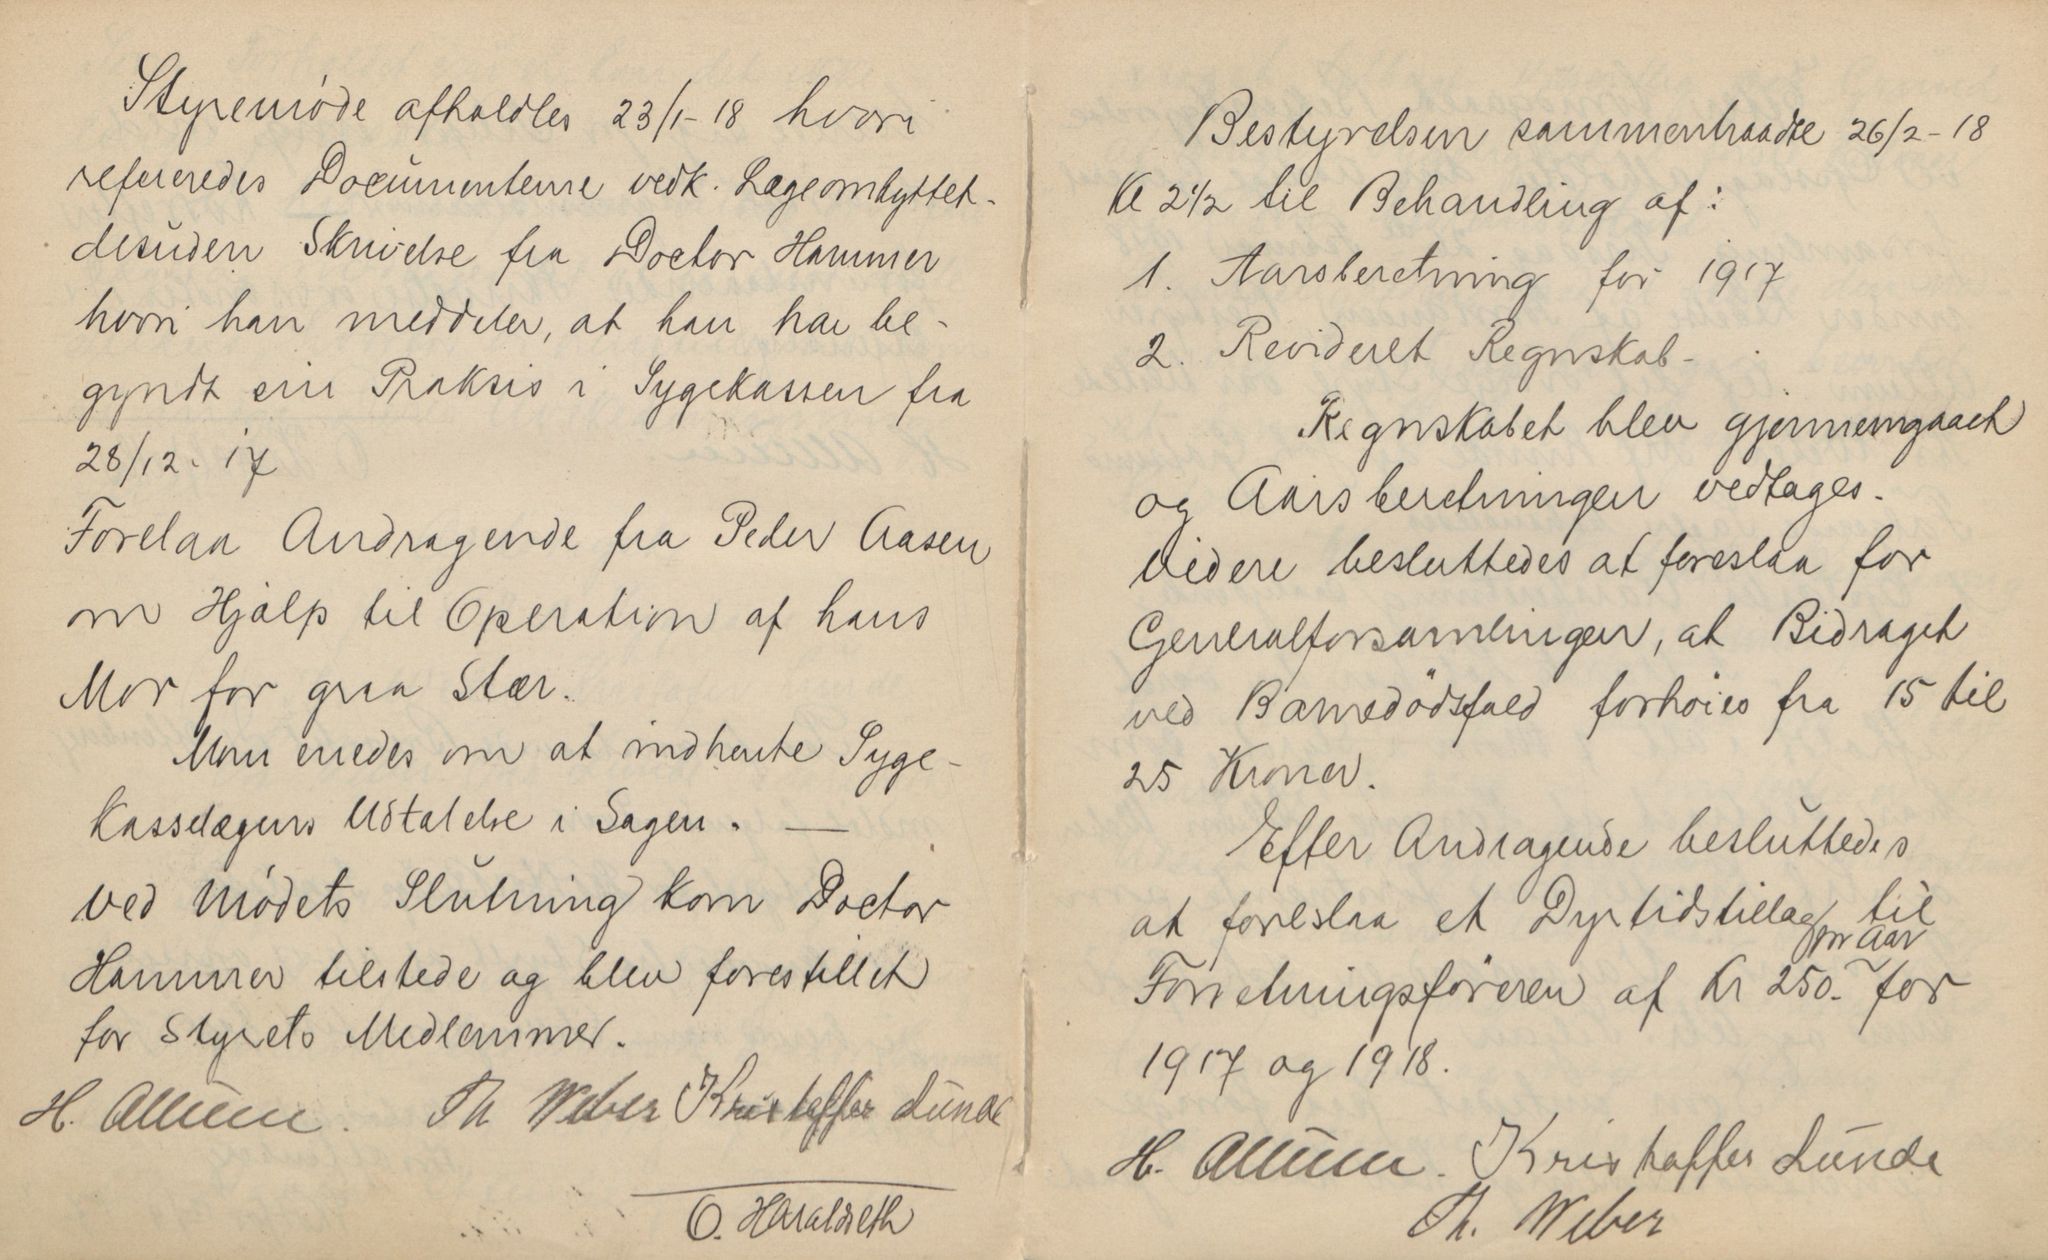 Styremöde afholdtes 23/1-18 hvori
refereredes Documenterne vedk. Lægeombyttet.
desuden Skrivelse fra Doctor Hammer
hvori han meddeler, at han har be-
gyndt sin Praksis i Sygekassen fra
28/12. 17
Forelaa Andragende fra Peder Aasen
om Hjælp til Operation af hans
Mor for graa Stær.
Man enedes om at indhente Syge-
kasselægens Udtalelse i Sagen. —
ved Mödets Slutning kom Doctor
Hammer tilstede og blev forestillet
for Styrets Medlemmer.
H. Allum. Th Weber Kristoffer Lunde
O. Haraldseth
Bestyrelsen sammentraadte 26/2-18
Kl 2 1/2 til Behandling af:
1. Aarsberetning for 1917
2. Revideret Regnskab-
Regnskabet blev gjennemgaaet
og Aarsberetningen vedtages.
videre besluttedes at foreslaa for
Generalforsamlingen, at Bidraget
ved Barnedödsfald forhöies fra 15 til
25 Kroner.
Efter Andragende besluttedes
at foreslaa et Dyrtidstillæg til
pr Aar
Forretningsföreren af Kr 250.- for
1917 og 1918.
H. Allum. Kristoffer Lunde
Th. Weber